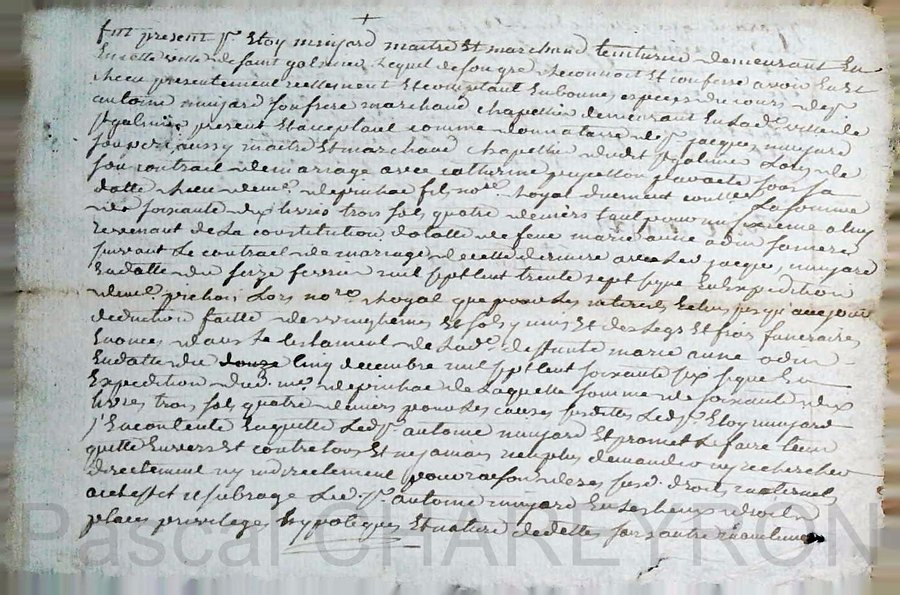 +
fut présent Sr Etoy minjard maitre Et marchand teinturier demeurant En
cette ville de saint galmier, Lequel de son gré Reconnoit Et confesse avoir Eu Et
Receu presentement reellement Et comptant En bonnes especes du cours de Sr
antoine minjard son frere marchand chapellier demeurant En Lad. ville de
St galmier present Et acceptant comme donnataire de Sr jacques minjard
son pere aussy maitre Et marchand chapellier dudit St galmier Lors de
son contrail de mariage avec catherine
datte Receu de me. deprinhac fils nore. Royal duement La somme
de soixante dix livres trois sols quatre deniers tant pour un sixieme a luy
revenant de La constitution dotalle de feue marie anne odin sa mere
suivant Le contrail de mariage de cette derniere avec Led. jacques minjard
En datte du seize fevrier mil sept cent trente sept signe En Expedition
de me. prichois Lors nore. Royal que pour Les interets Echus jusqu'aujourd'huy
deduction faitte des vingtiemes Et sols y unis Et des Legs Et frais funeraires
Enonces dans Le testament de Lad. deffunte marie anne odin
En datte du douze cinq decembre mil sept cent soixante six signe En
Expedition dud. me. deprinhac de Laquelle somme de soixante dix
livres trois sols quatre deniers pour Les causes susdites Led. Sr Etoy minjard
s'En contente En quitte Led. Sr antoine minjard Et promet Le faire tenir
quitte Envers Et contre tous Et ne jamais rien plus demander ny rechercher
directement ny indirectement pour raison de ses susd. droits maternels
Et subroge Led. Sr antoine minjard En ses lieux droits
places privilege, hypoteques Et nature de dettes sans autre
Pascal CHAREYRON